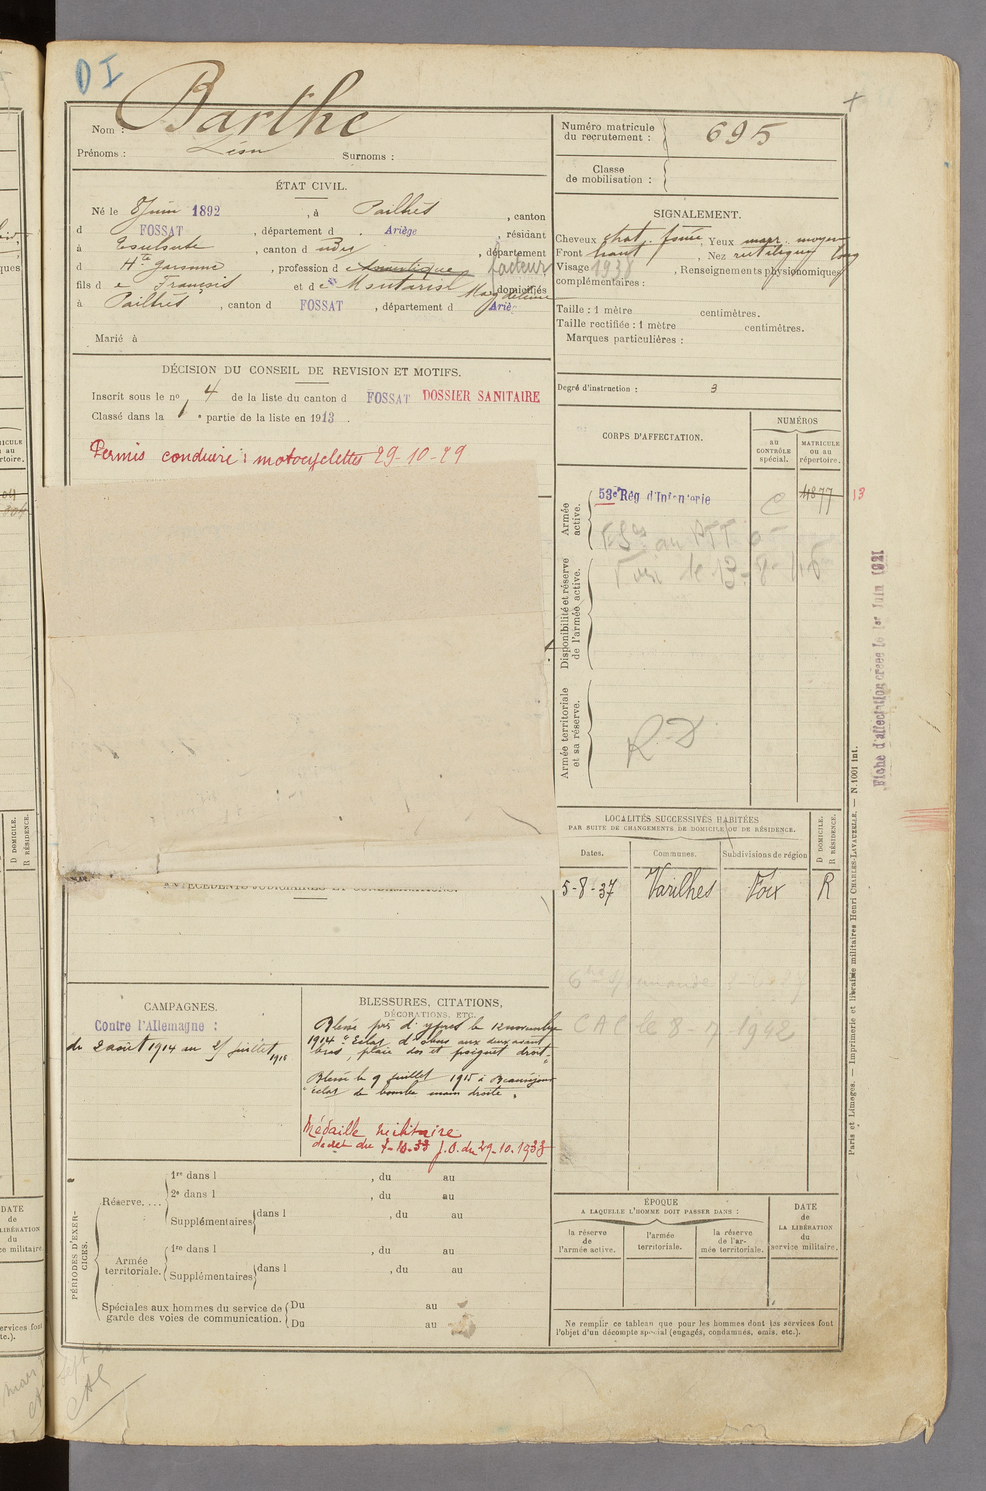 D I
Nom : Barthe
Prénoms : Léon Surnoms :
ÉTAT CIVIL.
Né le 8 Juin 1892, à Pailhès, canton
d FOSSAT, département d Ariège, résidant
à, canton d, département
d Hte Garonne, profession d facteur
fils de François et de Magdeleine domiciliés
à Pailhès, canton d FOSSAT, département d Ariè
Marié à
DÉCISION DU CONSEIL DE REVISION ET MOTIFS.
Inscrit sous le no 4 de la liste du canton d FOSSAT DOSSIER SANITAIRE
Classé dans la 1e partie de la liste en 1913.
Permis conduire : motocyclettes 29-10-29
ANTÉCÉDENTS JUDICIAIRES ET CONDAMNATIONS.
CAMPAGNES.
Contre l'Allemagne :
du 2 août 1914 au 25 juillet 1916
BLESSURES, CITATIONS,
DÉCORATIONS, ETC.
Blessé près d'ypres le 12 novembre
1914 "Eclat d'obus aux deux avant
bras, plaie dos et poignet droit"
Blessé le 9 juillet 1915 à Beauséjour
"éclat de bombe main droite"
Médaille militaire
décret du 7-10-33 J.O. du 29-10-1933
PÉRIODES D'EXERCICES.
Réserve....
1re dans l, du au
2e dans l, du au
Supplémentaires dans l, du au
Armée territoriale.
1re dans l, du au
Supplémentaires dans l, du au
Spéciales aux hommes du service de garde des voies de communication.
Du au
Du au
Numéro matricule du recrutement : 695
Classe de mobilisation :
SIGNALEMENT.
Cheveux chat. foncé, Yeux marr. moyen
Front haut, Nez rectiligne long
Visage 1938, Renseignements physionomiques
complémentaires :
Taille : 1 mètre centimètres.
Taille rectifiée : 1 mètre centimètres.
Marques particulières :
Degré d'instruction : 3
CORPS D'AFFECTATION.
NUMÉROS
au CONTRÔLE spécial.
MATRICULE ou au répertoire.
Armée active.
53e Rég d'Infanterie C 4877 13
au PTT
Foix le 13-8-
Disponibilité et réserve de l'armée active.
Armée territoriale et sa réserve.
R.D
LOCALITÉS SUCCESSIVES HABITÉES
PAR SUITE DE CHANGEMENTS DE DOMICILE OU DE RÉSIDENCE.
Dates. Communes. Subdivisions de région
D DOMICILE. R RÉSIDENCE.
5-8-37 Varilhes Foix R
CAC le 8-7-1942
ÉPOQUE
A LAQUELLE L'HOMME DOIT PASSER DANS :
la réserve de l'armée active.
l'armée territoriale.
la réserve de l'armée territoriale.
DATE de LA LIBÉRATION du service militaire.
Ne remplir ce tableau que pour les hommes dont les services font
l'objet d'un décompte spécial (engagés, condamnés, omis, etc.).
Fiche d'affectation créée le 1er Juin 1921
Paris et Limoges. — Imprimerie et librairie militaires Henri CHARLES-LAVAUZELLE. — N. 1001 int.